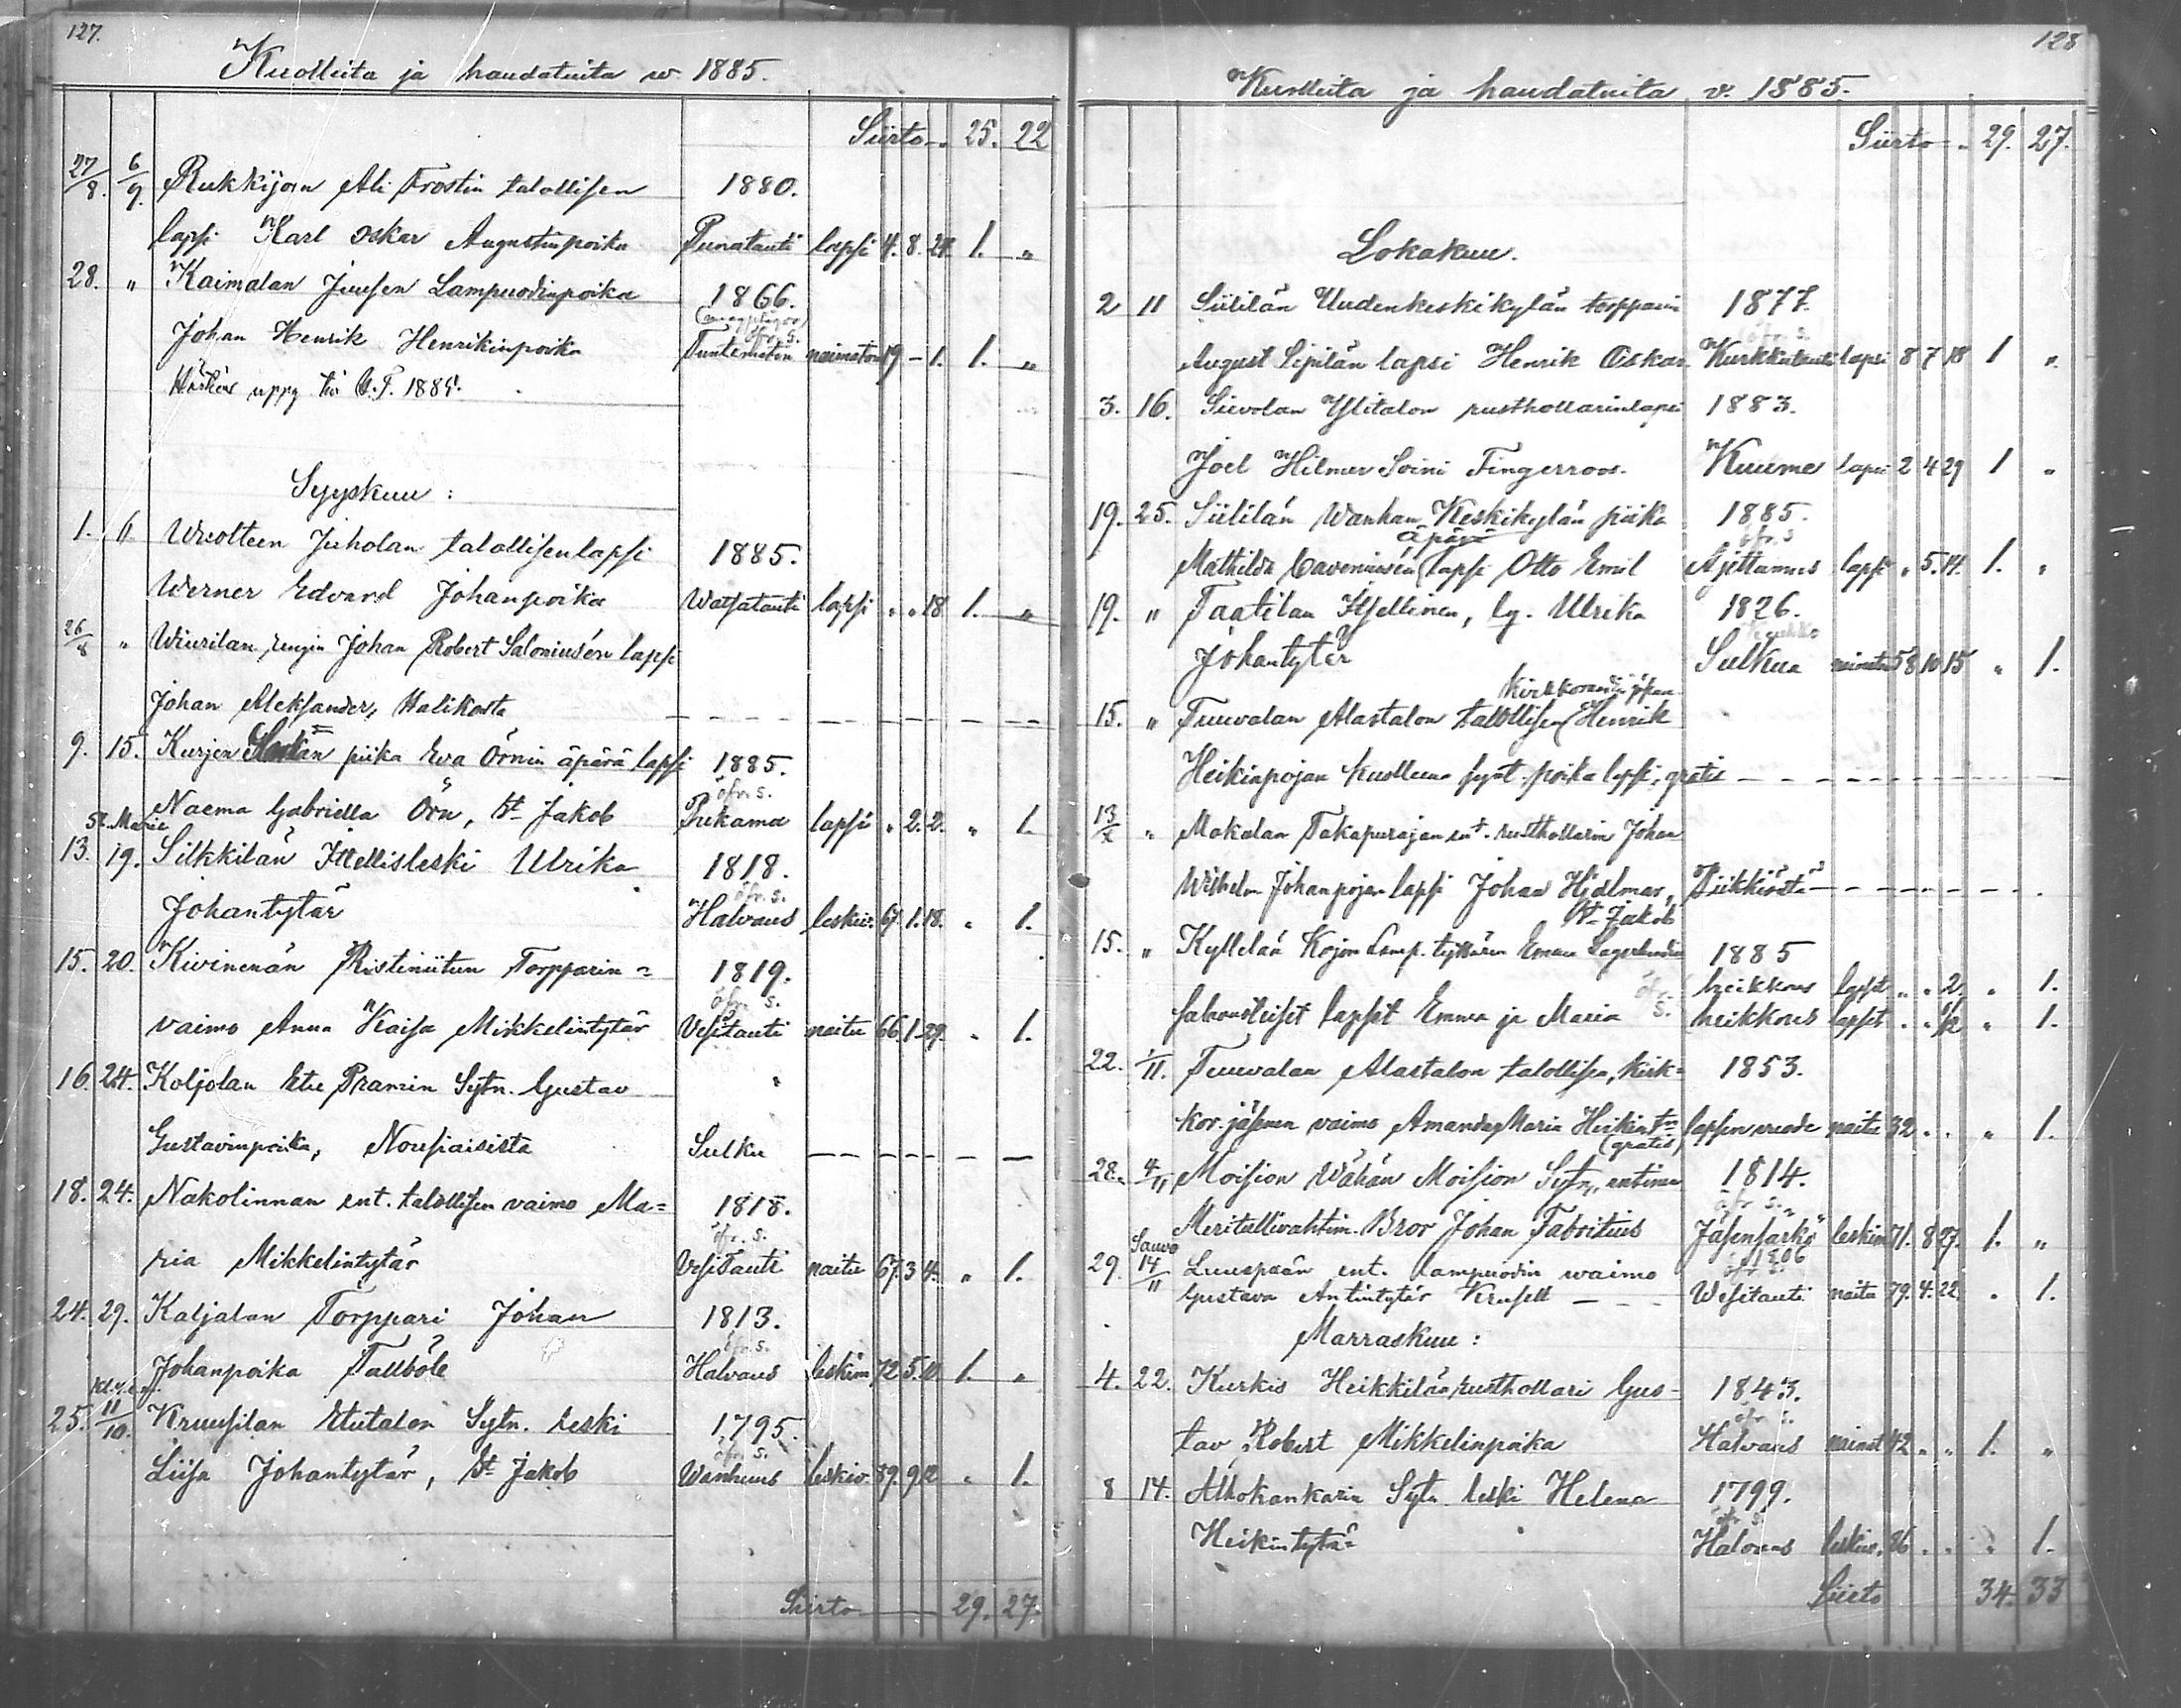 127.
Kuolleita ja haudatuita w. 1885.
Siirto 25. 22
27/8. 6/9. Rukkijoen Ali Frostin talollisen 1880.
lapsi Karl Oskar Augustinpoika Punatauti lapsi 4. 8. 24. 1. "
28. " Kaimalan Juusen Lampuodinpoika 1866.
öfr. s.
Johan Henrik Henrikinpoika Tuntematon naimaton 19 - 1. 1. "
uppg. 1885.
Syyskuu:
1. 6. Juholan talollisen lapsi 1885.
Werner Edvard Johanpoika Watsatauti lapsi " " 18 1. "
26/8 " Wiurilan rengin Johan Robert Saloniusén lapsi
Johan Aleksander, Halikosta
9. 15. Kurjen piika Eva Örnin äpärä lapsi 1885.
öfr. s.
Naema Gabriella Örn, St Jakob Pukama lapsi " 2. 2. " 1.
St. Marie
13. 19. Silkkilän Itellisleski Ulrika 1818.
öfr. s.
Johantytär Halvaus leskiv. 67. 1. 18. " 1.
15. 20. Kivinenän Ristiniitun Torpparin= 1819.
öfr. s.
vaimo Anna Kaisa Mikkelintytär Vesitauti naitu 66. 1. 29. " 1.
16. 24. Koljolan Etu Pramin Sytn. Gustav "
Gustavinpoika, Nousiaisista Sulku
18. 24. Nakolinnan ent. talollisen vaimo Ma= 1818.
öfr. s.
ria Mikkelintytär Vesitauti naitu 67. 3 4. " 1.
24. 29. Kaljalan Torppari Johan 1813.
öfr. s.
Johanpoika Tallböle Halvaus leskim 72 5. 11. 1. "
25. 11/10. Kruusilan Etutalon Sytn. leski 1795.
öfr. s.
Liisa Johantytär, St Jakob Wanhuus leskiv. 89. 9. 12. " 1.
Siirto 29. 27.
128
Kuolleita ja haudatuita v. 1885.
Siirto 29. 27.
Lokakuu.
2 11 Siililän Uudenkeskikylän torpparin 1877.
öfr. s.
August Sipilän lapsi Henrik Oskar Kurkkutauti lapsi 8 7 18 1 "
3. 16. Sievolan Ylitalon rusthollarinlapsi 1883.
Joel Hilmer Soini Fingerroos. Kuume lapsi 2 4 29 1 "
19. 25. Siililän Wanhan Keskikylän piika 1885.
äpärä öfr. s
Mathilda Caveniusén lapsi Otto Emil Ajettumus lapsi " 5. 14. 1. "
19. " Taatilan Itsellinen, lg. Ulrika 1826.
Johantytär Sulkua naimaton 58 10 15 " 1.
15. " Tuuvalan Alastalon talollisen Henrik
Heikinpojan kuolleena synt. poika lapsi, gratis
13/X " Makalan Takapurajan ent. rusthollarin Johan
Wilhelm Johanpojan lapsi Johan Hjalmar, Piikkiöstä
St Jakob
15. " Kyllelän Kojon Lamp. tyttären Emma Lagerlundin 1885
heikkous lapset " " 2. " 1.
öfr. s.
lapset Emma ja Maria heikkous lapset " " 1/2 " 1.
22. 1/11. Tuuvalan Alastalon talollisen, kirk= 1853.
kor. jäsenen vaimo Amanda Maria Heikintr lapsen vuode naitu 32 " " " 1.
(gratis)
28. 4/11 Moision Wähän Moision Sytn., entinen 1814.
öfr. s.
Meritullivahtim. Bror Johan Fabritius Jäsensärkö leskim 71. 8 27. 1. "
Sauvo
29. 14/11 Luuspään ent. lampuodin waimo 1806
öfr. s.
Gustava Antintytär Krusell Wesitauti naitu 79. 4. 22. " 1.
Marraskuu:
4. 22. Kurkis Heikkilän rusthollari Gus= 1843.
öfr. s.
tav Robert Mikkelinpoika Halvaus nainut 42 " " 1. "
8 14. Alhokankarin Sytn. leski Helena 1799.
öfr. s.
Heikintytär Halvaus leskiv. 86 " " " 1.
Siirto 34. 33